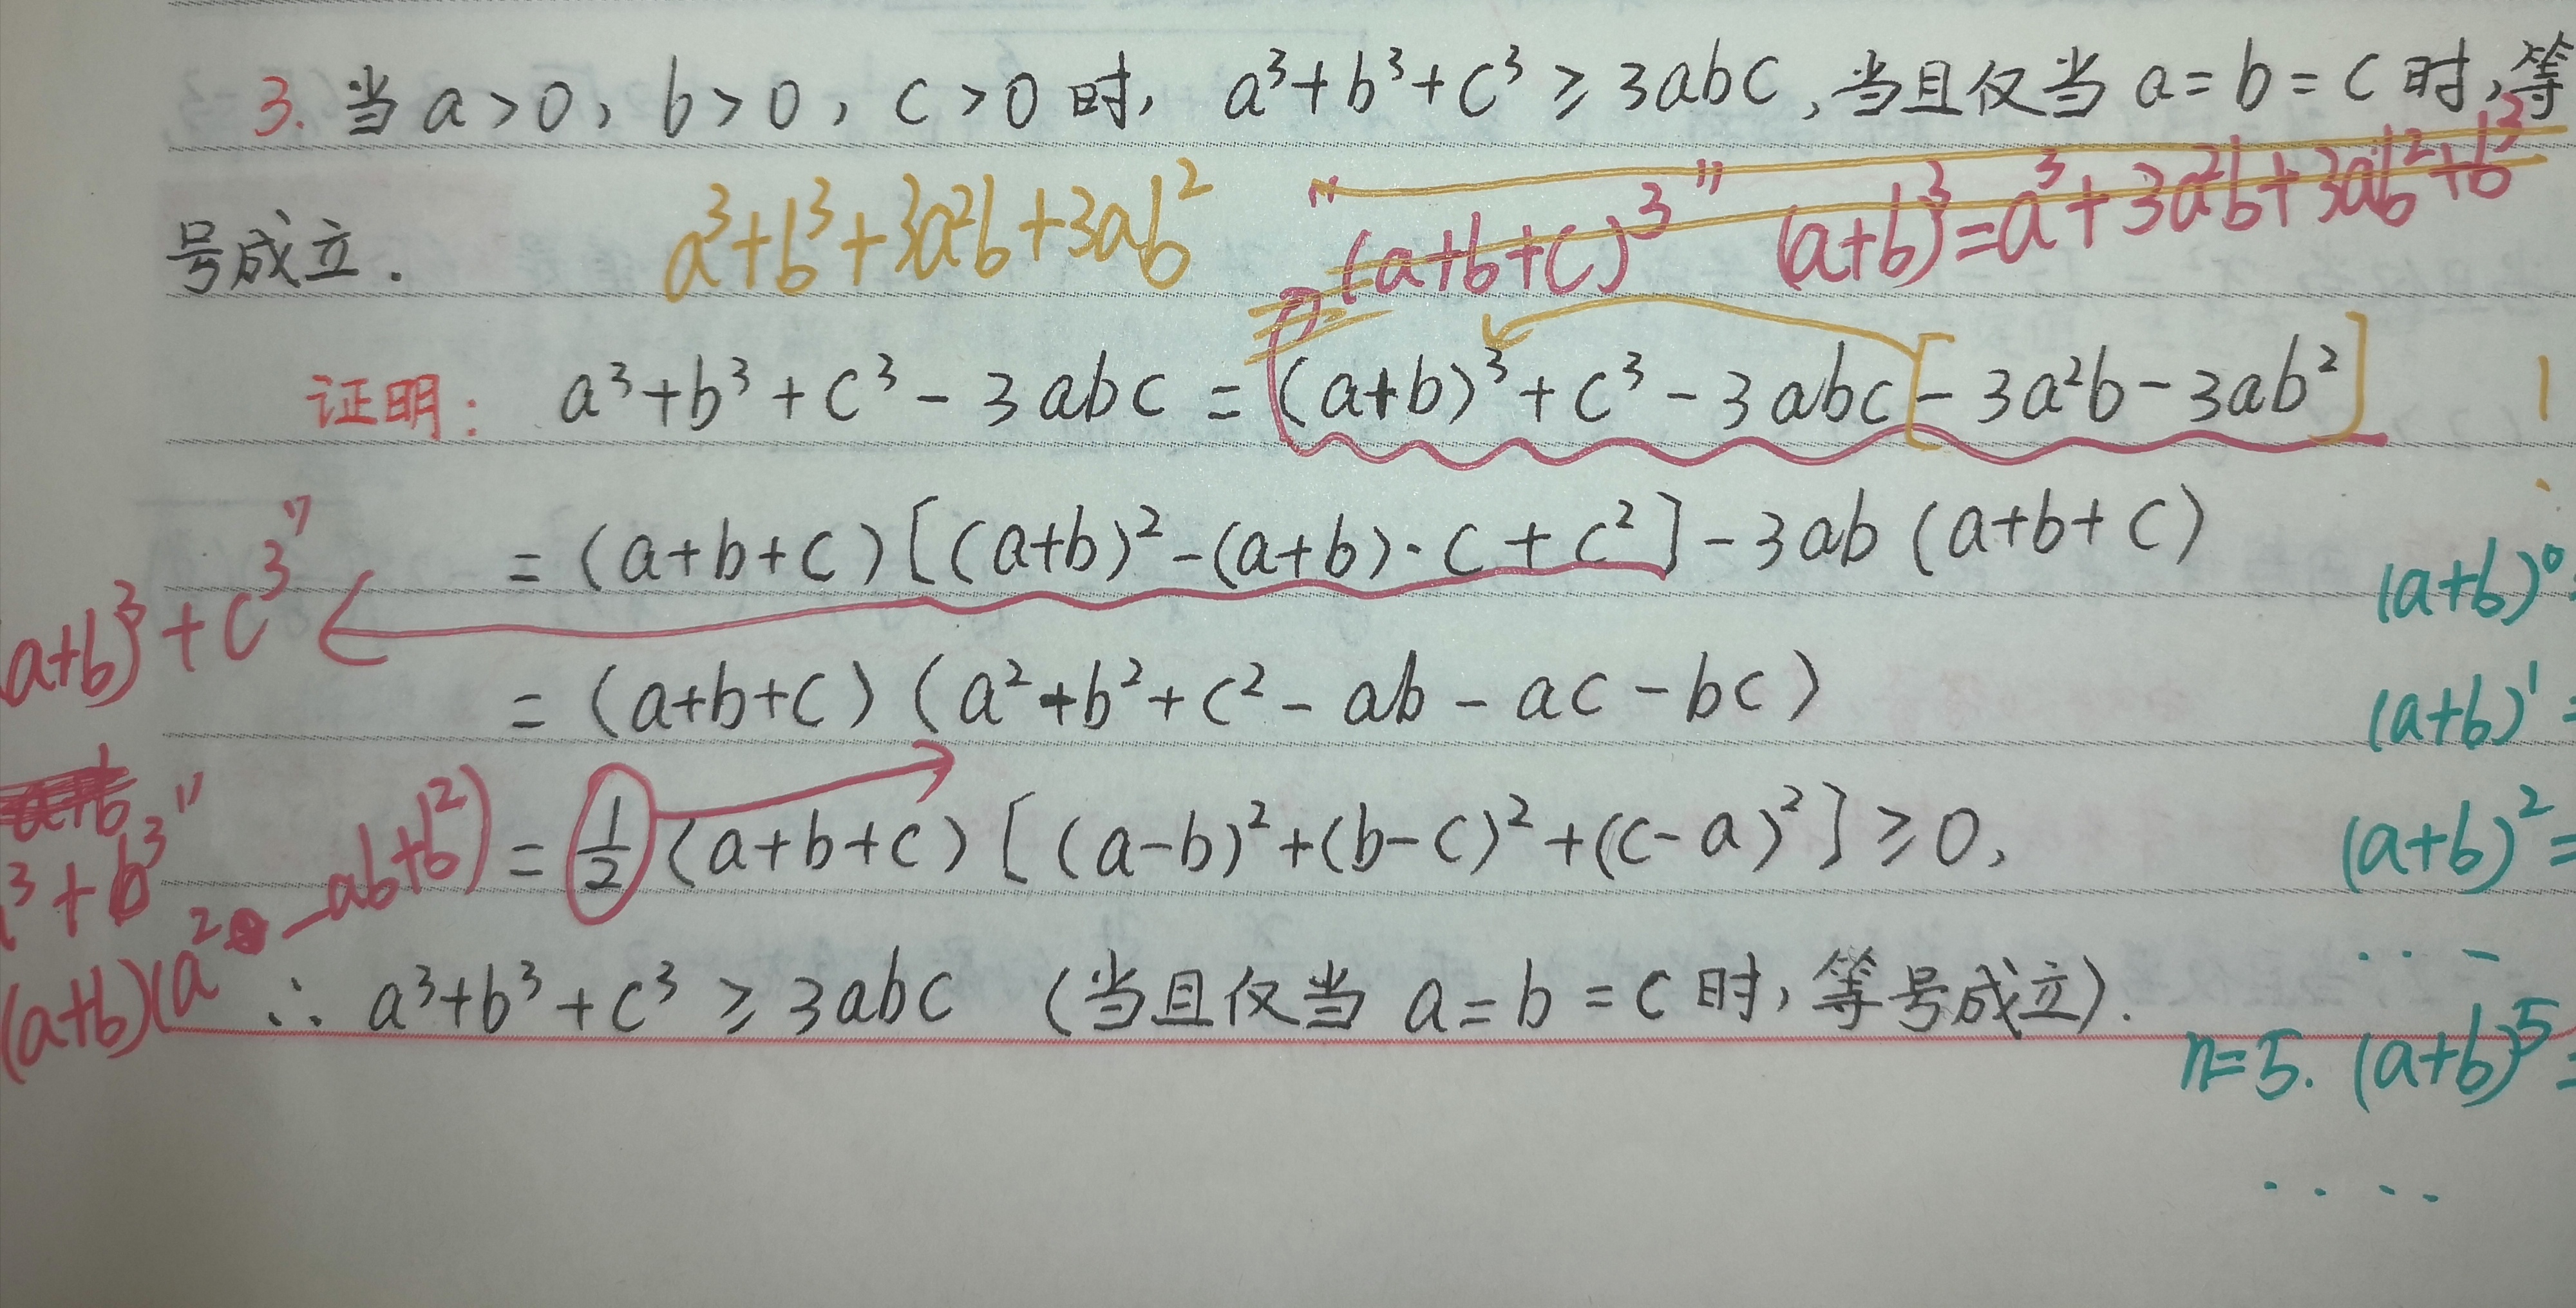 3. 当 a>0, b>0, c>0 时, a³+b³+c³ ≥ 3abc, 当且仅当 a=b=c 时, 等
号成立.
a³+b³+3a²b+3ab²
"(a+b+c)³"
(a+b)³=a³+3a²b+3ab²+b³
证明: a³+b³+c³-3abc = (a+b)³+c³-3abc[-3a²b-3ab²]
= (a+b+c)[(a+b)²-(a+b)·c+c²]-3ab(a+b+c)
a+b)³+c³"
(a+b)⁰
= (a+b+c)(a²+b²+c²-ab-ac-bc)
(a+b)¹=
a+b
³+b³"
(a+b)(a²-ab+b²)
= ½(a+b+c)[(a-b)²+(b-c)²+(c-a)²] ≥ 0,
(a+b)²=
∴ a³+b³+c³ ≥ 3abc (当且仅当 a=b=c 时, 等号成立).
n=5. (a+b)⁵=
....